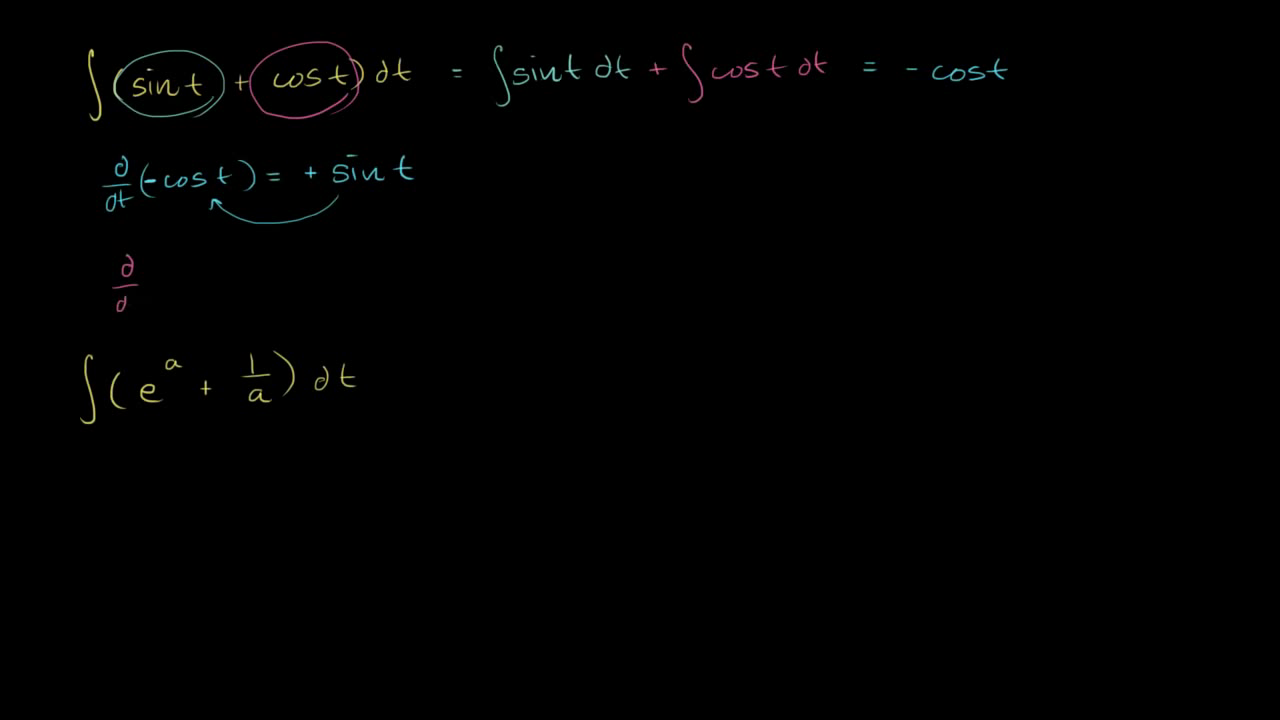 ∫(sin t + cos t) dt = ∫sin t dt + ∫cos t dt = - cos t
d/dt (-cos t) = + sin t
d/d
∫(e^a + 1/a) dt